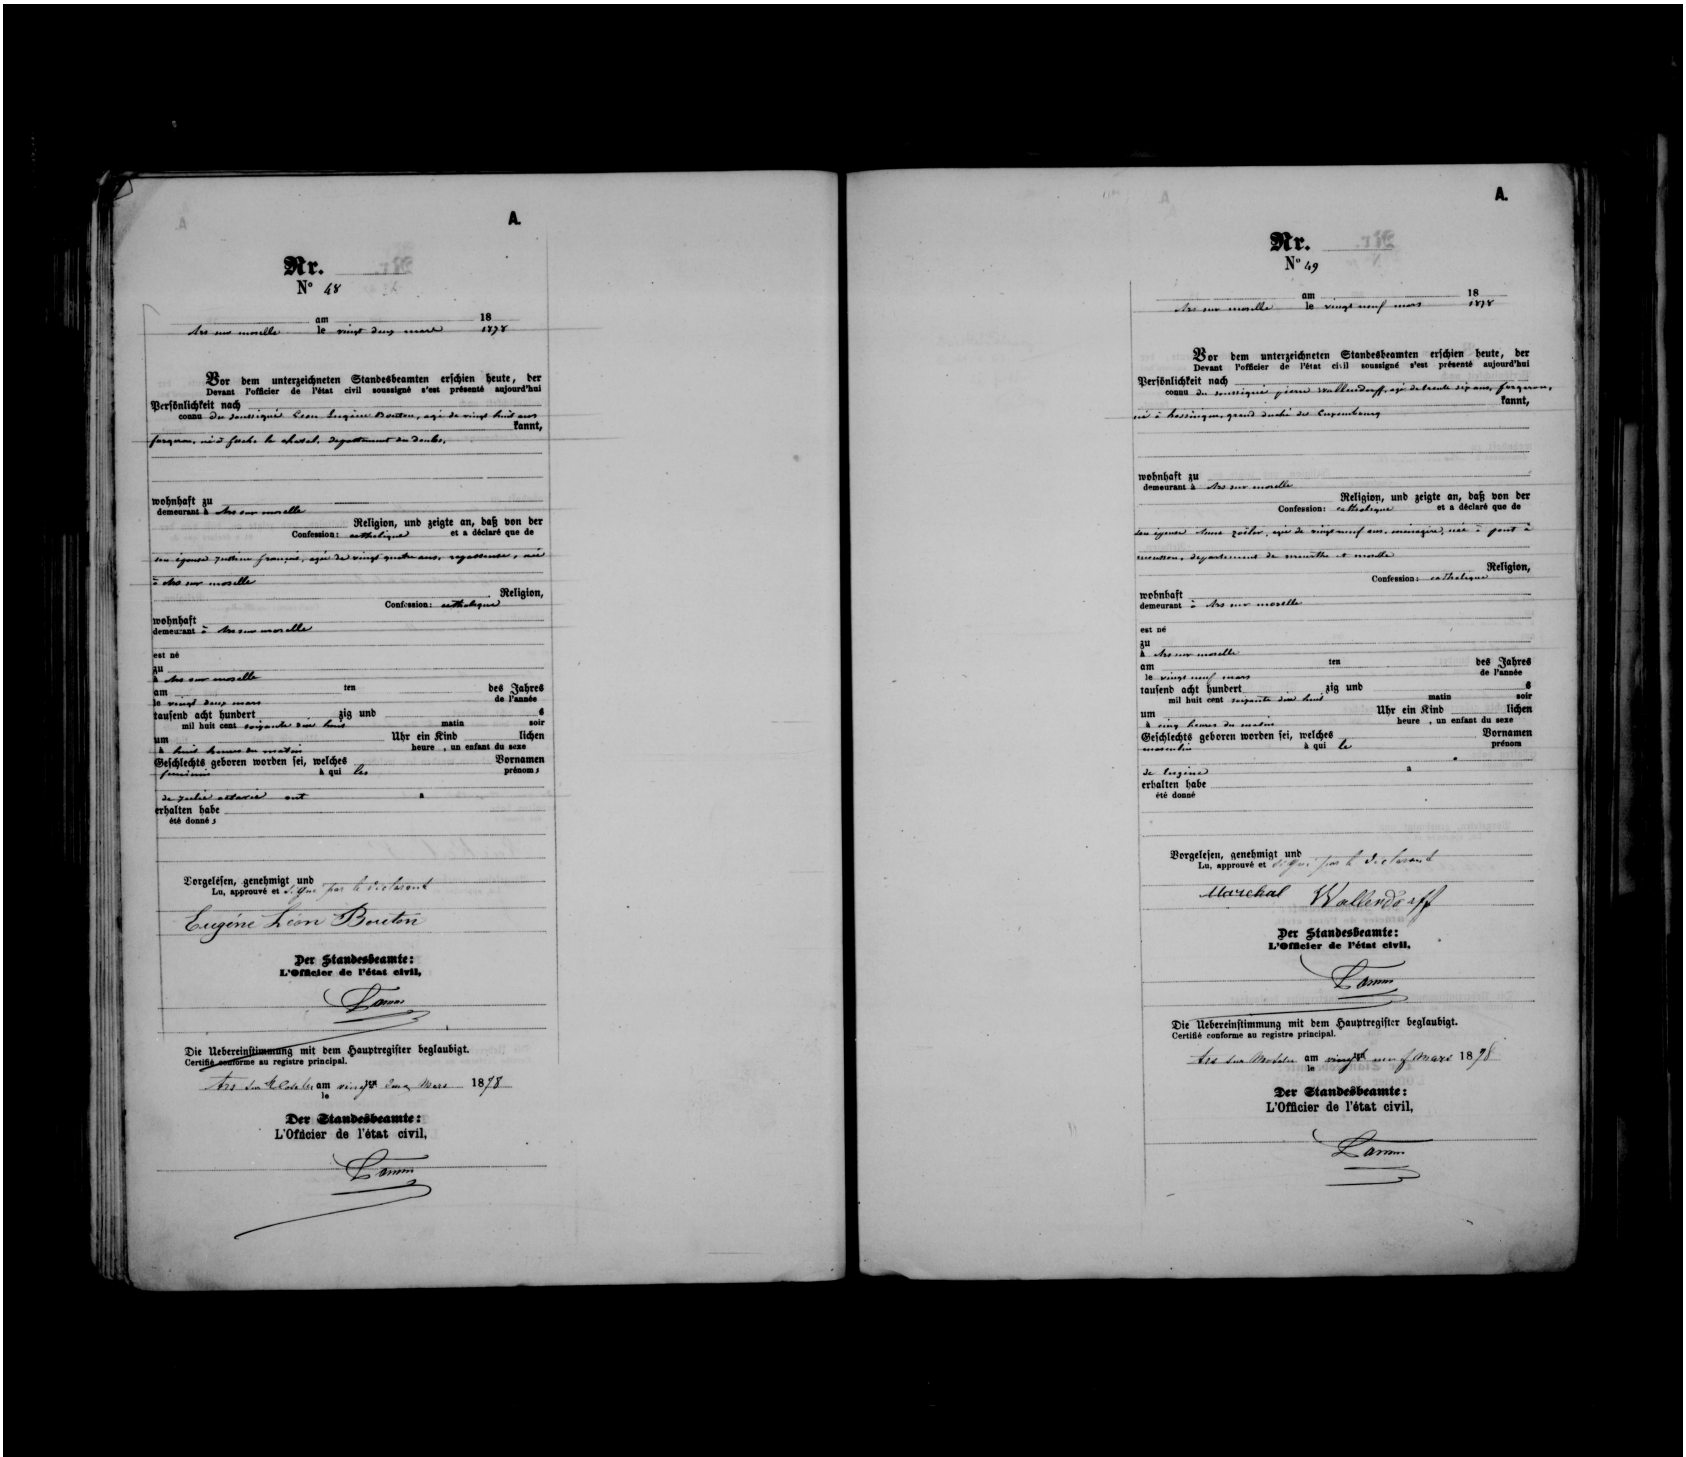 A.
Nr.
N° 48
am 18
Ars sur moselle le vingt deux mars 1878
Vor dem unterzeichneten Standesbeamten erschien heute, der
Devant l'officier de l'état civil soussigné s'est présenté aujourd'hui
Persönlichkeit nach
connu du soussigné Léon Eugène Bouton, agé de vingt huit ans
kannt,
forgeron, né à le chatel, departement du doubs,
wohnhaft zu
demeurant à Ars sur moselle
Religion, und zeigte an, daß von der
Confession: catholique et a déclaré que de
son épouse françois, agée de vingt quatre ans, repasseuse, née
à Ars sur moselle
Religion,
Confession: catholique
wohnhaft
demeurant à Ars sur moselle
est né
zu
à Ars sur moselle
am ten des Jahres
le vingt deux mars de l'année
tausend acht hundert zig und
mil huit cent soixante dix huit matin soir
um Uhr ein Kind lichen
à huit heures du matin heure , un enfant du sexe
Geschlechts geboren worden sei, welches Vornamen
féminin à qui les prénoms
de Julie ont
erhalten habe
été donnés
Vorgelesen, genehmigt und
Lu, approuvé et signé par le déclarant
Eugéne Léon Bouton
Der Standesbeamte:
L'Officier de l'état civil,
Die Uebereinstimmung mit dem Hauptregister beglaubigt.
Certifié conforme au registre principal.
Ars sur Moselle am vingt deux Mars 1878
le
Der Standesbeamte:
L'Officier de l'état civil,
A.
Nr.
N° 49
am 18
Ars sur moselle le vingt neuf mars 1878
Vor dem unterzeichneten Standesbeamten erschien heute, der
Devant l'officier de l'état civil soussigné s'est présenté aujourd'hui
Persönlichkeit nach
connu du soussigné pierre Wallendorff, agé de trente six ans, forgeron,
kannt,
né à grand duché de Luxembourg
wohnhaft zu
demeurant à Ars sur moselle
Religion, und zeigte an, daß von der
Confession: catholique et a déclaré que de
son épouse Anne agée de vingt neuf ans, ménagère, née à pont à
mousson, departement de meurthe et moselle
Religion,
Confession: catholique
wohnhaft
demeurant à Ars sur moselle
est né
zu
à Ars sur moselle
am ten des Jahres
le vingt neuf mars de l'année
tausend acht hundert zig und
mil huit cent soixante dix huit matin soir
um Uhr ein Kind lichen
à cinq heures du matin heure , un enfant du sexe
Geschlechts geboren worden sei, welches Vornamen
masculin à qui le prénom
de Eugène a
erhalten habe
été donné
Vorgelesen, genehmigt und
Lu, approuvé et signé par le déclarant
Marchal Wallendorff
Der Standesbeamte:
L'Officier de l'état civil,
Die Uebereinstimmung mit dem Hauptregister beglaubigt.
Certifié conforme au registre principal.
Ars sur Moselle am vingt neuf Mars 1878
le
Der Standesbeamte:
L'Officier de l'état civil,